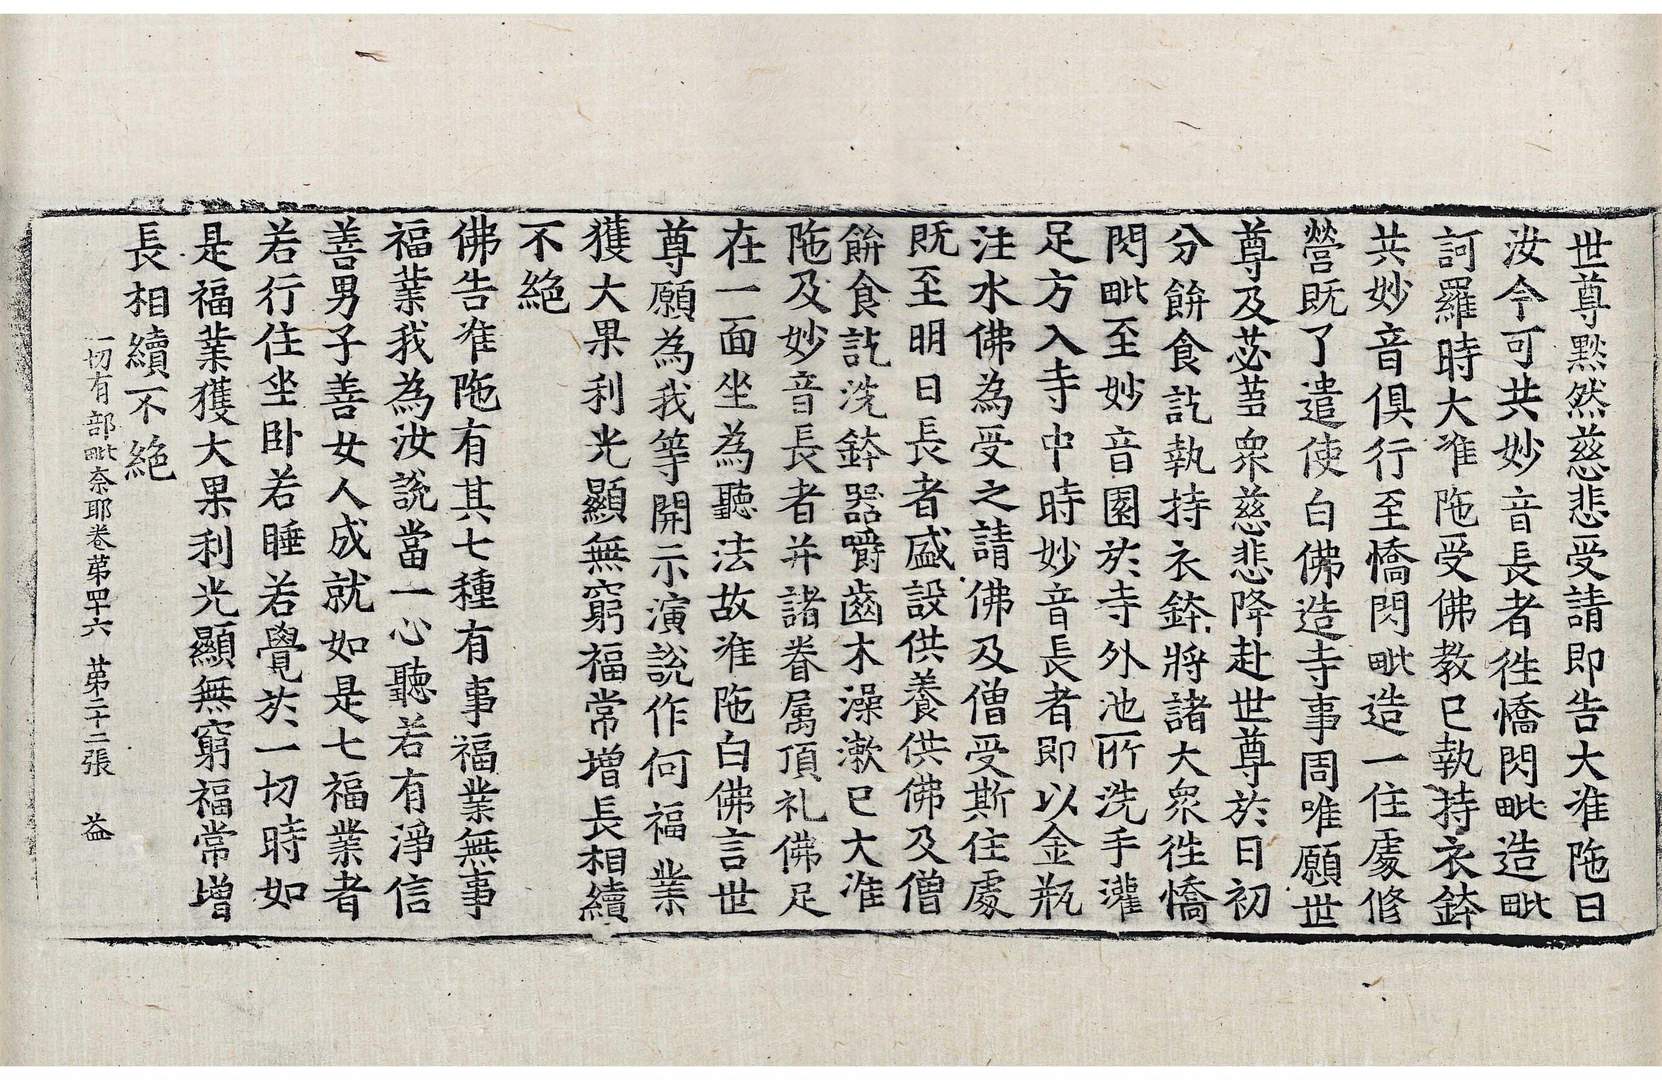 世尊黙然慈悲受請即告大准陁曰
汝今可共妙音長者徃憍閃毗造毗
訶羅時大准陁受佛教已執持衣鉢
共妙音俱行至憍閃毗造一住處修
營既了遣使白佛造寺事周唯願世
尊及苾芻衆慈悲降赴世尊於日初
分餅食訖執持衣鉢將諸大衆徃憍
閃毗至妙音園於寺外池所洗手灌
足方入寺中時妙音長者即以金瓶
注水佛為受之請佛及僧受斯住處
既至明日長者盛設供養供佛及僧
餅食訖洗鉢器嚼齒木澡漱已大准
陁及妙音長者并諸眷属頂礼佛足
在一面坐為聽法故准陁白佛言世
尊願為我等開示演說作何福業
獲大果利光顯無窮福常增長相續
不絶
佛告准陁有其七種有事福業無事
福業我為汝說當一心聽若有淨信
善男子善女人成就如是七福業者
若行住坐卧若睡若覺於一切時如
是福業獲大果利光顯無窮福常增
長相續不絶
一切有部毗奈耶卷苐四十六 苐二十二張 益